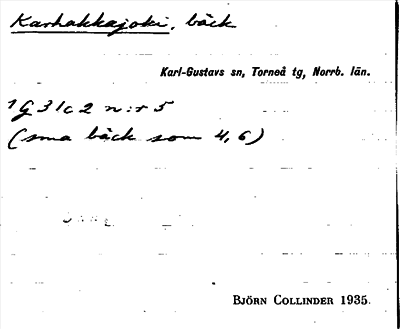 Karhakkajoki, bäck
Karl-Gustavs sn, Torneå tg, Norrb. län.
1 G 31c 2 n:r 5
(sma bäck som 4, 6)
BJÖRN COLLINDER 1935.